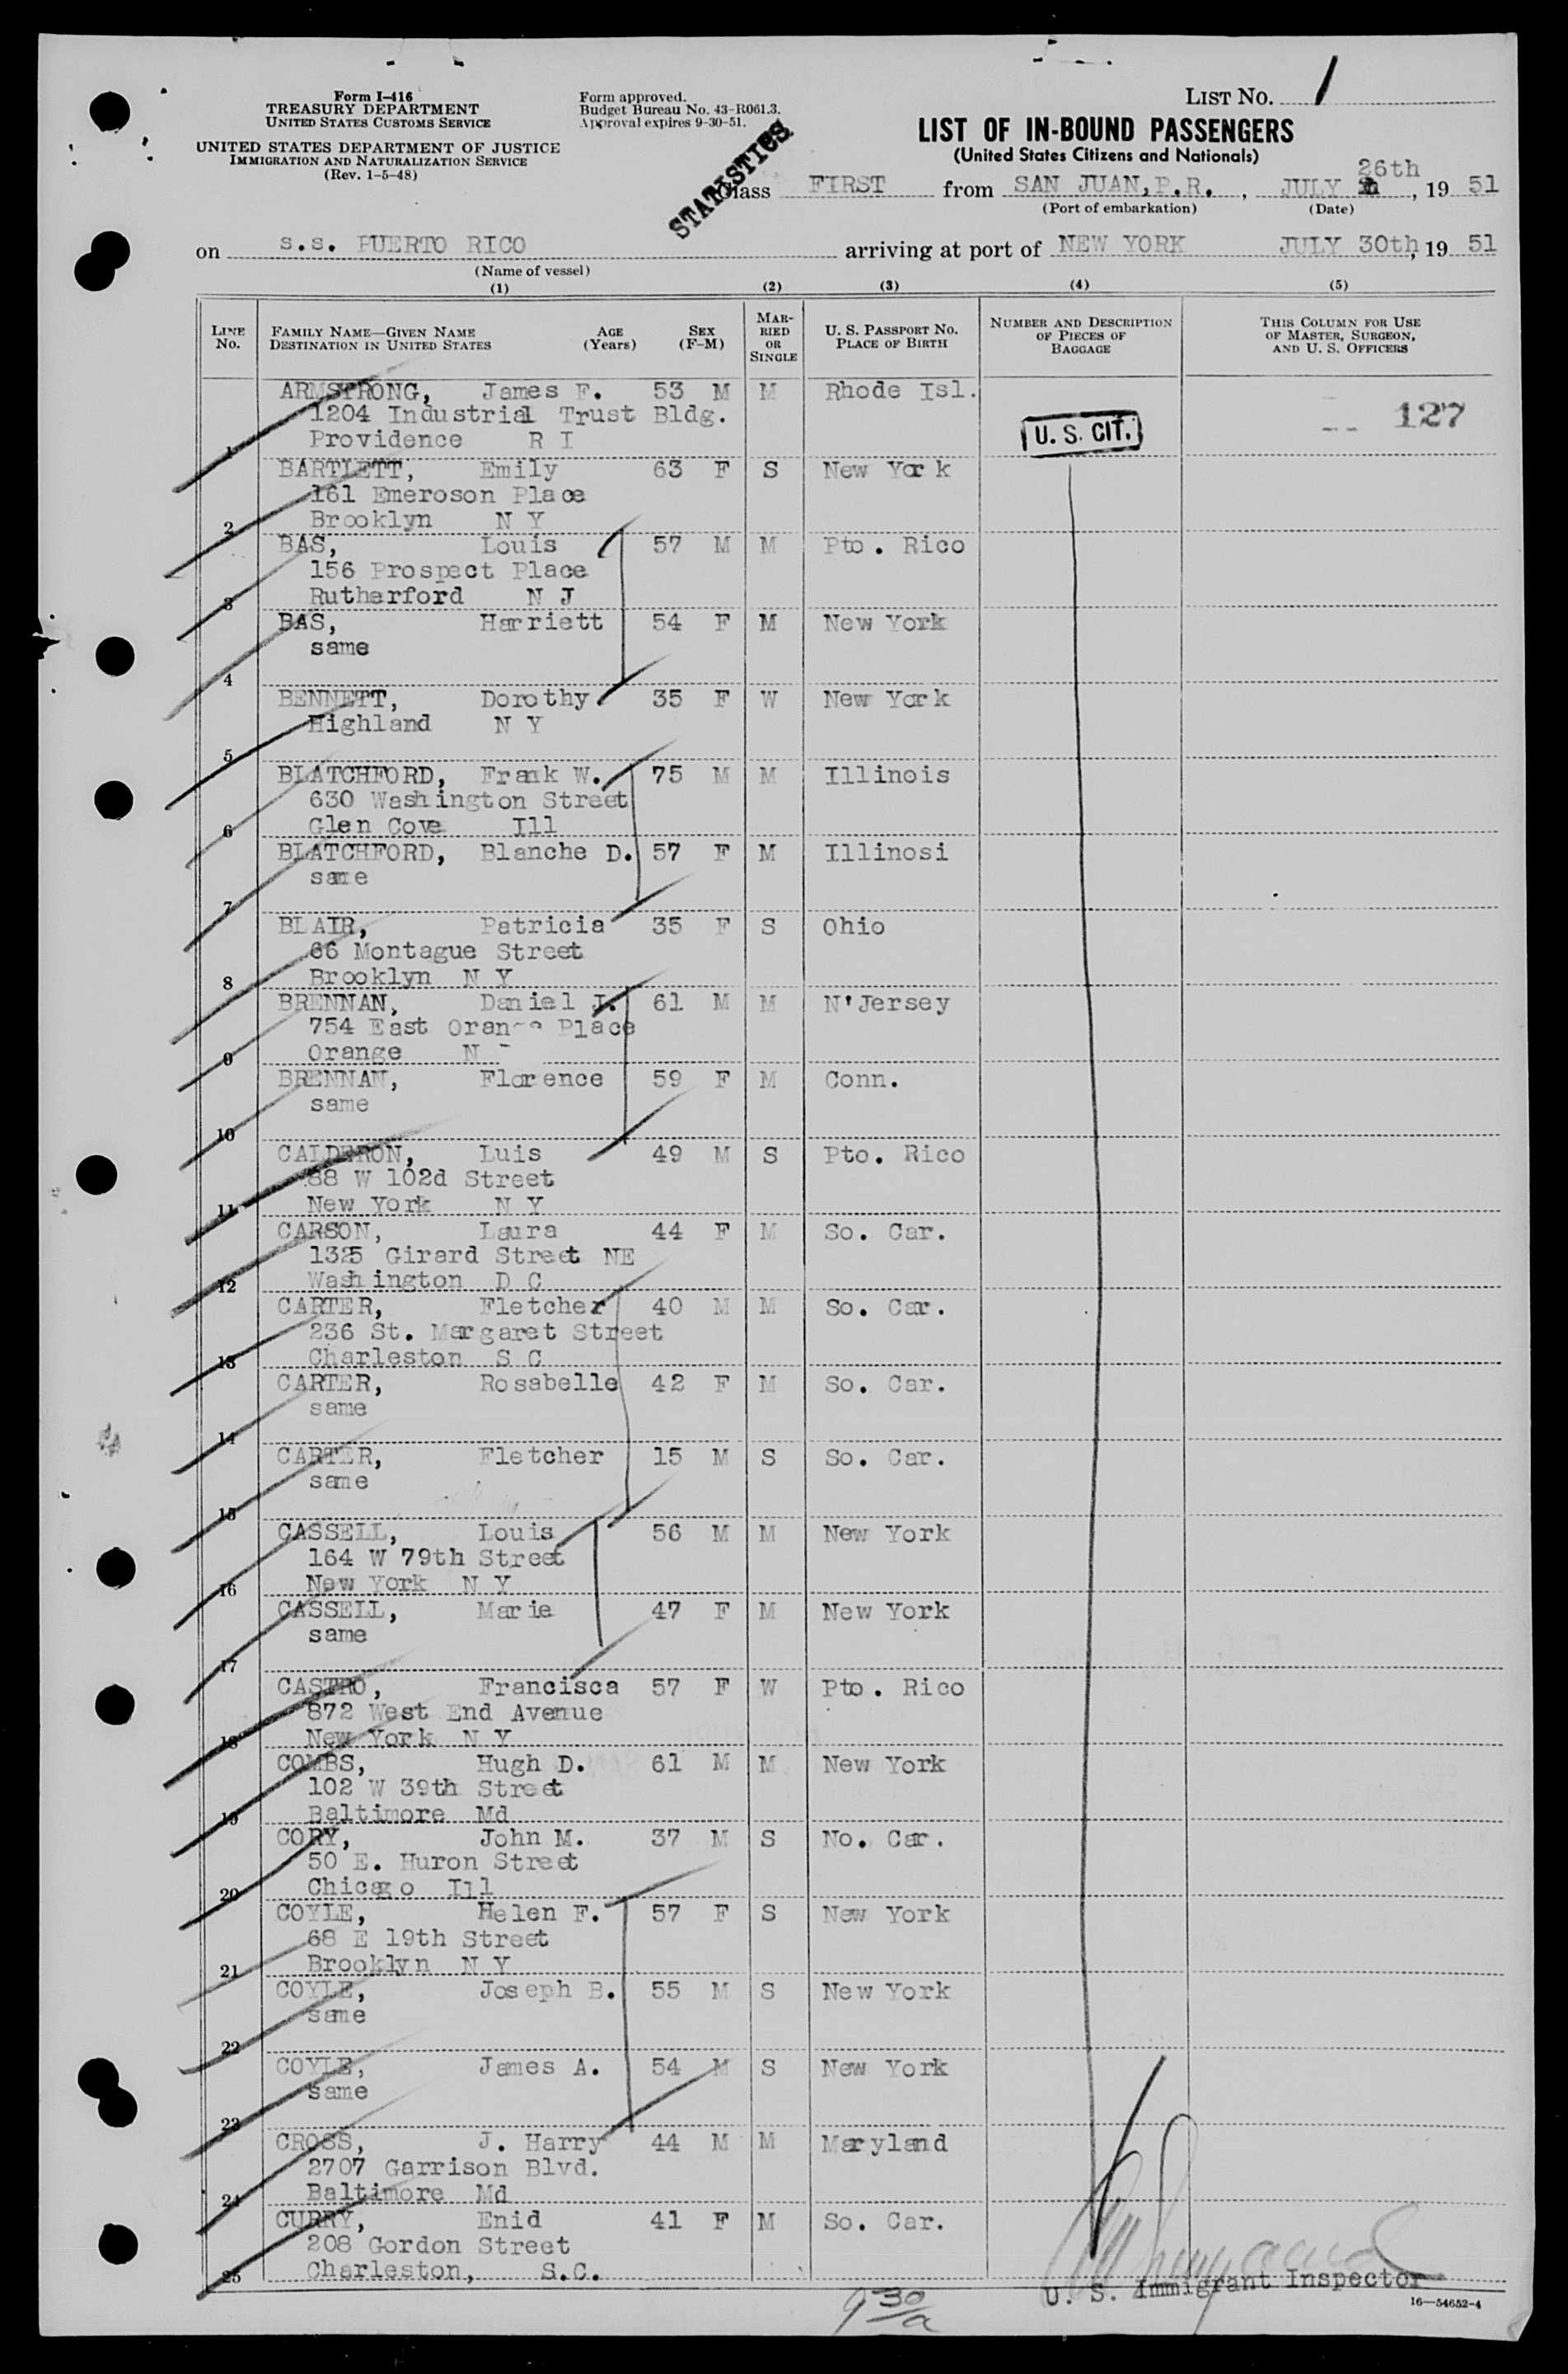 Form I-416
TREASURY DEPARTMENT
UNITED STATES CUSTOMS SERVICE
UNITED STATES DEPARTMENT OF JUSTICE
IMMIGRATION AND NATURALIZATION SERVICE
(Rev. 1-5-48)
Form approved.
Budget Bureau No. 43-R061.3.
Approval expires 9-30-51.
STATISTICS
LIST NO. 1
LIST OF IN-BOUND PASSENGERS
(United States Citizens and Nationals)
Class FIRST from SAN JUAN, P.R., JULY 26th, 19 51
(Port of embarkation) (Date)
on s.s. PUERTO RICO arriving at port of NEW YORK JULY 30th, 19 51
(Name of vessel)
(1) (2) (3) (4) (5)
LINE NO. FAMILY NAME—GIVEN NAME DESTINATION IN UNITED STATES AGE (Years) SEX (F-M) MARRIED OR SINGLE U. S. PASSPORT NO. PLACE OF BIRTH NUMBER AND DESCRIPTION OF PIECES OF BAGGAGE THIS COLUMN FOR USE OF MASTER, SURGEON, AND U. S. OFFICERS
ARMSTRONG, James F. 53 M M Rhode Isl.
1204 Industrial Trust Bldg. 127
1 Providence R I U. S. CIT.
BARTLETT, Emily 63 F S New York
161 Emeroson Place
2 Brooklyn N Y
BAS, Louis 57 M M Pto. Rico
156 Prospect Place
3 Rutherford N J
BAS, Harriett 54 F M New York
same
4
BENNETT, Dorothy 35 F W New York
Highland N Y
5
BLATCHFORD, Frank W. 75 M M Illinois
630 Washington Street
6 Glen Cove Ill
BLATCHFORD, Blanche D. 57 F M Illinosi
same
7
BLAIR, Patricia 35 F S Ohio
66 Montague Street
8 Brooklyn N Y
BRENNAN, Daniel J. 61 M M N'Jersey
754 East Orange Place
9 Orange N
BRENNAN, Florence 59 F M Conn.
same
10
CALDERON, Luis 49 M S Pto. Rico
88 W 102d Street
11 New York N Y
CARSON, Laura 44 F M So. Car.
1325 Girard Street NE
12 Washington D C
CARTER, Fletcher 40 M M So. Car.
236 St. Margaret Street
13 Charleston S C
CARTER, Rosabelle 42 F M So. Car.
same
14
CARTER, Fletcher 15 M S So. Car.
same
15
CASSELL, Louis 56 M M New York
164 W 79th Street
16 New York N Y
CASSELL, Marie 47 F M New York
same
17
CASTRO, Francisca 57 F W Pto. Rico
872 West End Avenue
18 New York N Y
COMBS, Hugh D. 61 M M New York
102 W 39th Street
19 Baltimore Md
CORY, John M. 37 M S No. Car.
50 E. Huron Street
20 Chicago Ill
COYLE, Helen F. 57 F S New York
68 E 19th Street
21 Brooklyn N Y
COYLE, Joseph B. 55 M S New York
same
22
COYLE, James A. 54 M S New York
same
23
CROSS, J. Harry 44 M M Maryland
2707 Garrison Blvd.
24 Baltimore Md
CURRY, Enid 41 F M So. Car.
208 Gordon Street
25 Charleston, S.C.
U. S. Immigrant Inspector
9 30/a
16—54652-4